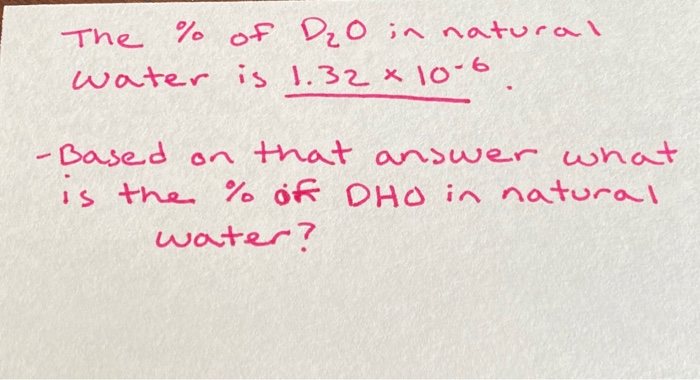 The % of D₂O in natural
water is 1.32 x 10⁻⁶.
- Based on that answer what
is the % of DHO in natural
water?